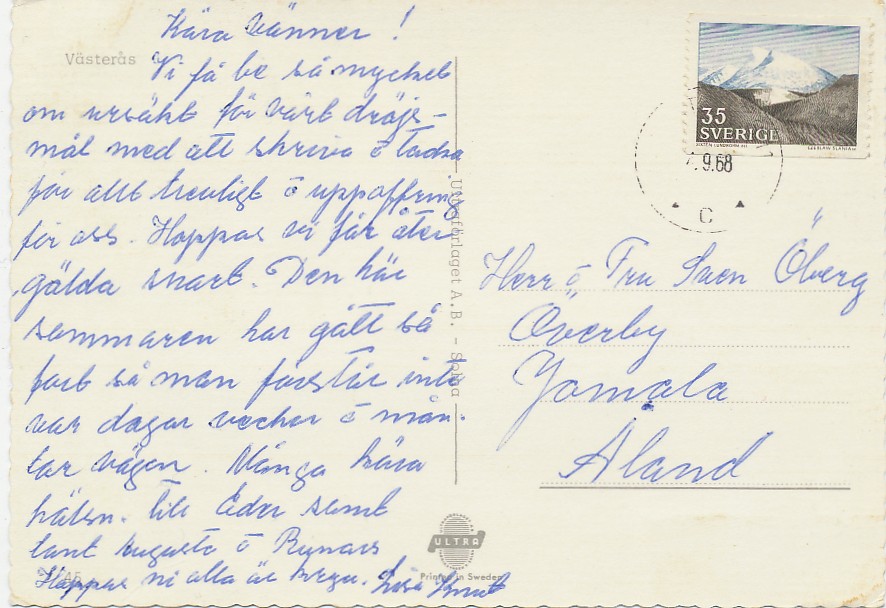 Kära Vänner !
Västerås
Vi få be så mycket
om ursäkt för vårt dröjs-
mål med att skriva o tacka
för allt trevligt o uppoffring
för oss. Hoppas vi får åter
gälda snart. Den här
sommaren har gått så
fort så man förstår inte
var dagar veckor o mån-
tar vägen. Många kära
hälsn. till Eder samt
tant Augusta o Runars
Hoppas ni alla är krya. Lisa Knut
Ultraförlaget A.B. - Solna
ULTRA
Printed in Sweden
35
SVERIGE
CZESLAW SLANIA SC
9.68
C
Herr o Fru Sven Öberg
Överby
Jomala
Åland